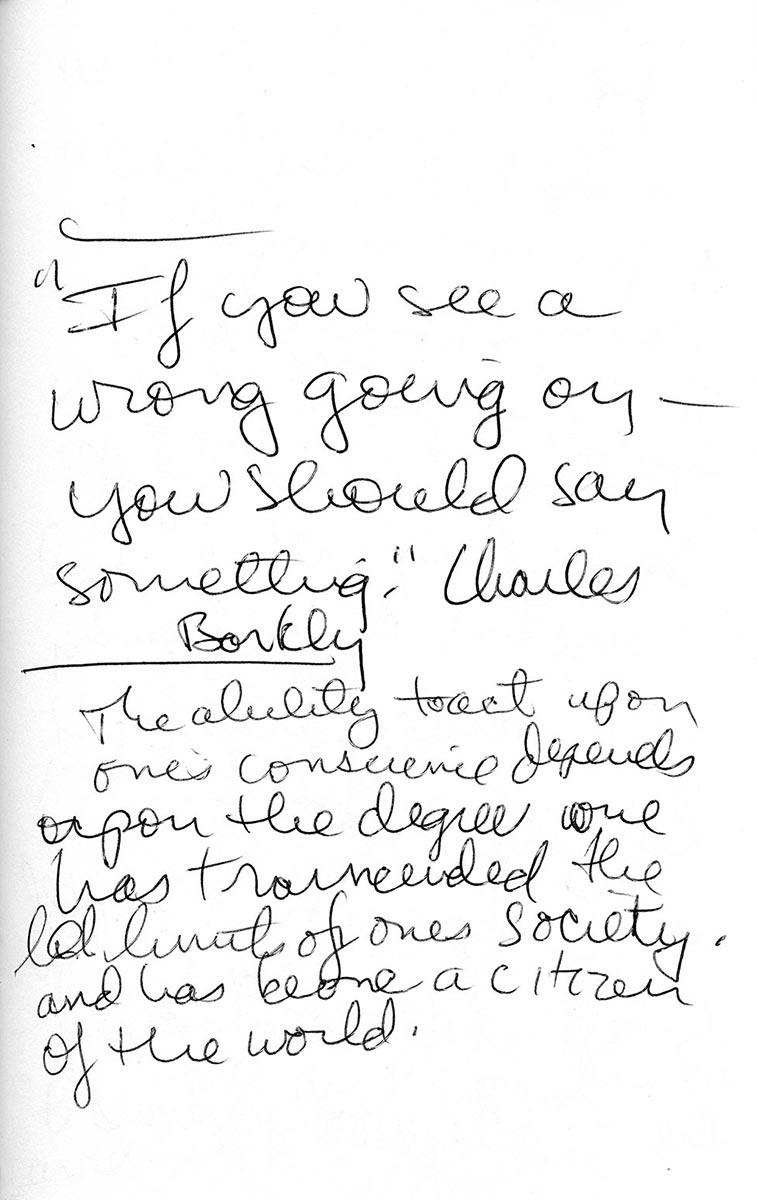 "If you see a
wrong going on —
you should say
something." Charles
Barkly
The ability to act upon
one's conscience depends
upon the degree one
has transcended the
limits of ones society.
and has become a citizen
of the world.